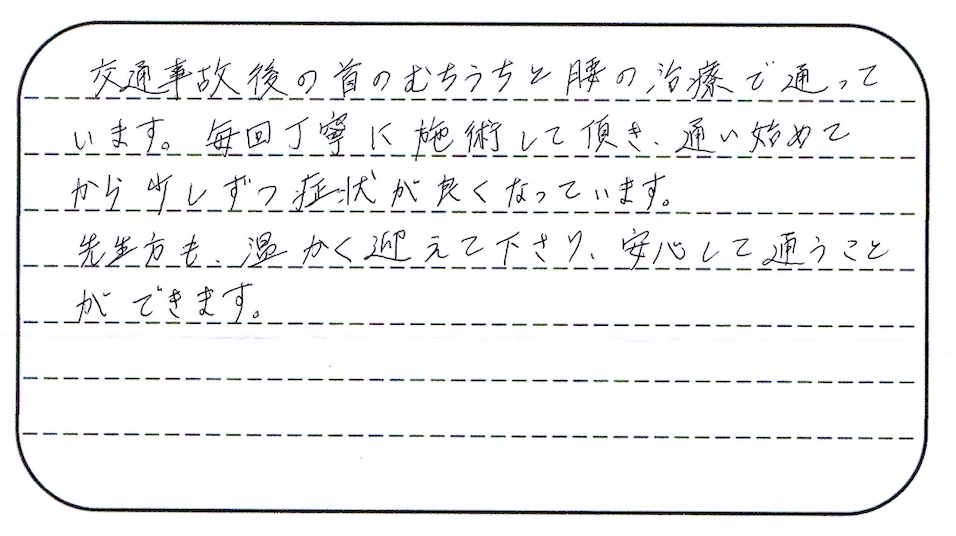 交通事故後の首のむちうちと腰の治療で通って
います。毎回丁寧に施術して頂き、通い始めて
から少しずつ症状が良くなっています。
先生方も、温かく迎えて下さり、安心して通うこと
ができます。